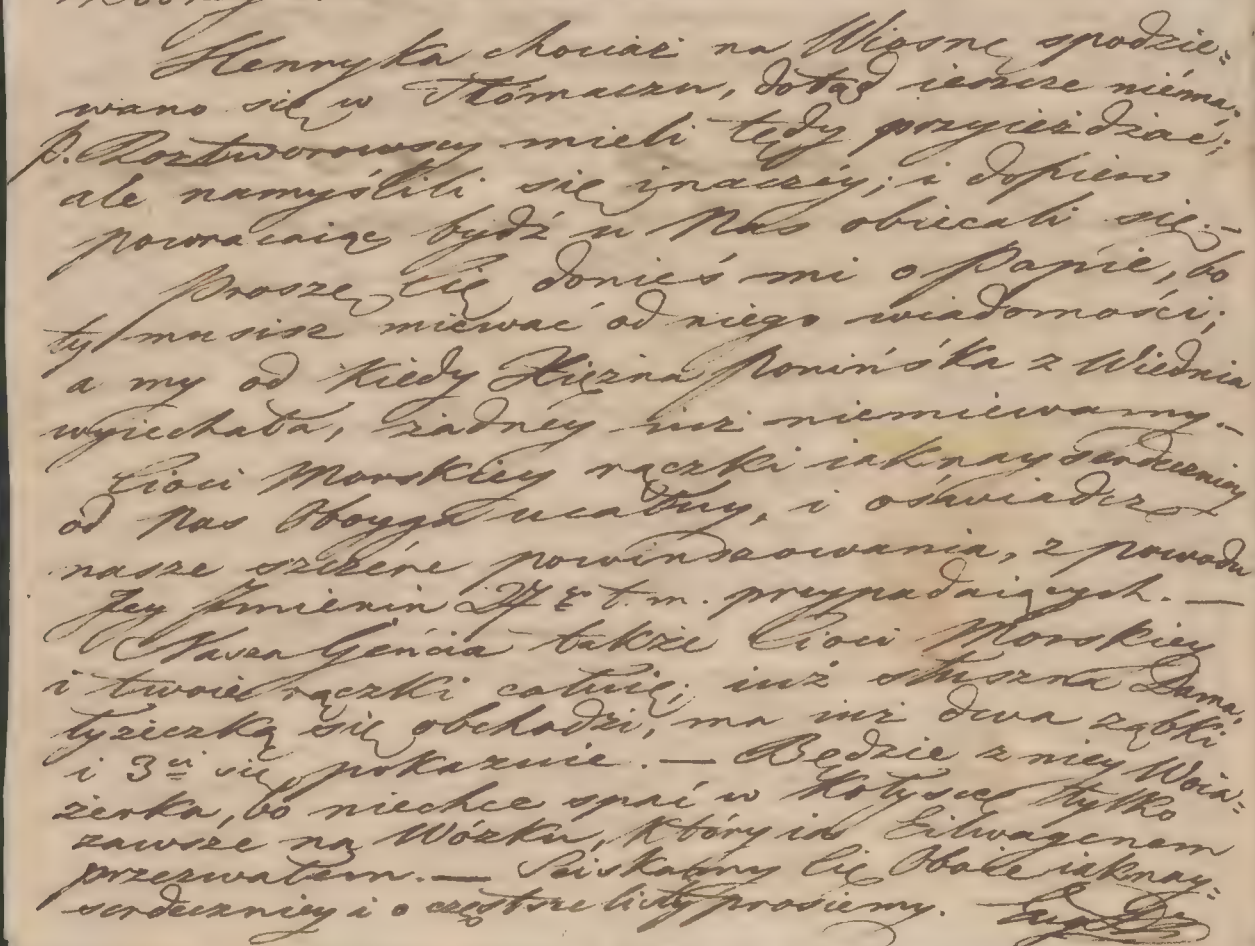 Henryka chociaż na Wiosnę spodzie=
wano się w Tłómaczu, dotąd ieszcze niéma.
p. Roztworowscy mieli tędy przyieżdżać;
ale namyślili się inaczéy; i dopiero
powracaiąc bydź u Nas obiecali się. —
Proszę Cię donieś mi o Papie, bo
ty musisz miewać od niego wiadomości;
a my od kiedy Xiężna Ponińska z Wiednia
wyiechała, żadney iuż niemiewamy. —
Cioci Morskiey rączki iaknayserdeczniey
od Nas Oboyga ucałuy, i oświadcz
nasze szczére powinszowania, z powodu
Jey Imienin 27 t. m. przypadaiących. —
Nasza Geńcia także Cioci Morskiey
i twoie rączki całuię; iuż słuszna Dama,
łyżeczką się obchodzi, ma iuż dwa ząbki
i 3ci się pokazuie. — Będzie z niey Woia=
żerka, bo niechce spać w Kołysce tylko
zawsze na Wózku, który ia Eilwagenem
przezwałem. — Sciskamy Cię Oboie iaknay=
serdeczniey i o częstsze listy prosiemy.